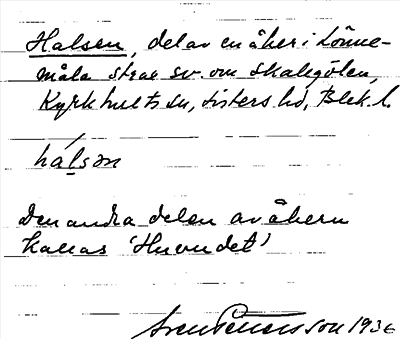 Halsen, del av en åker i Lönne-
måla strax sv. om Skalegölen,
Kyrkhults sn, Listers hd, Blek. l.
hálsən
Den andra delen av åkern
kallas 'Huvudet'
Sven 1936